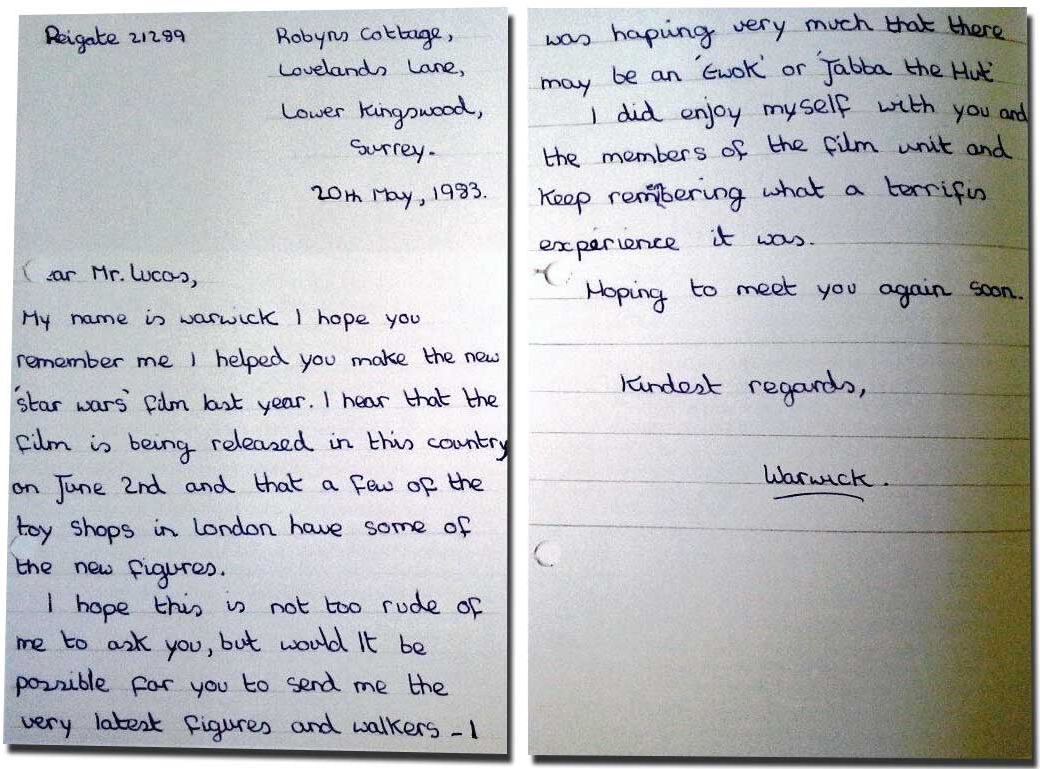 Reigate 21289
Robyns Cottage,
Lovelands Lane,
Lower Kingswood,
Surrey.
20th May, 1983.
ar Mr. Lucas,
My name is warwick I hope you
remember me I helped you make the new
'star wars' film last year. I hear that the
film is being released in this country
on June 2nd and that a few of the
toy shops in london have some of
the new figures.
I hope this is not too rude of
me to ask you, but would It be
possible for you to send me the
very latest figures and walkers - I
was hapiing very much that there
may be an 'Ewok' or 'Jabba the Hut'
I did enjoy myself with you and
the members of the film unit and
Keep remembering what a terrifis
experience it was.
Hoping to meet you again soon.
Kindest regards,
Warwick.